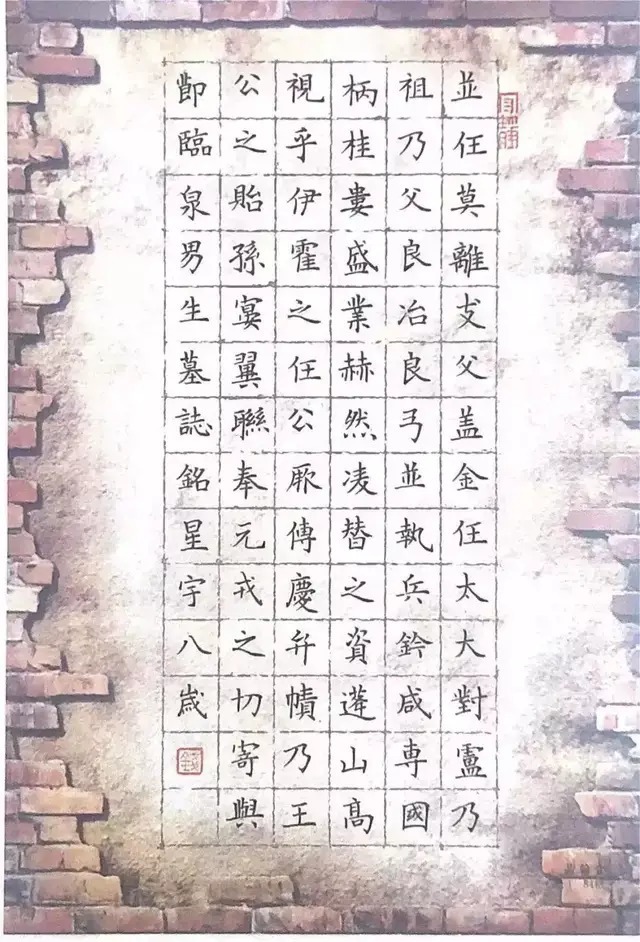 並任莫離支父盖金任太大對盧乃
祖乃父良冶良弓並執兵鈐咸専國
柄桂婁盛業赫然凌替之資蓬山高
視乎伊霍之任公厥傳慶弁幘乃王
公之貽孫宴翼聯奉元戎之切寄與
節臨泉男生墓誌銘星宇八歲